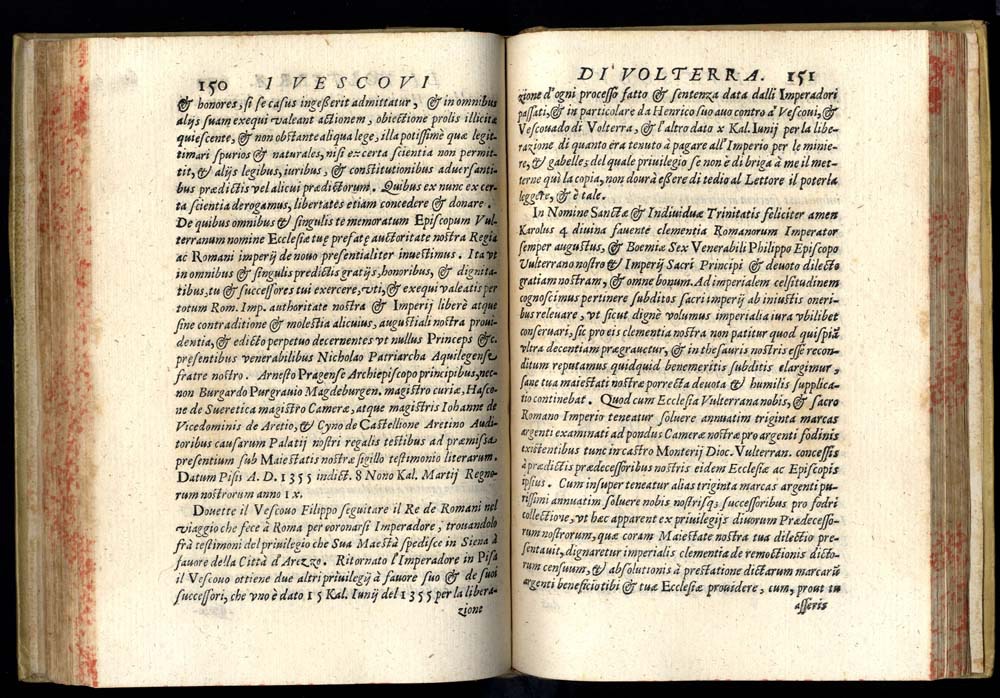 150 I VESCOVI
& honores, si se casus ingeßerit admittatur, & in omnibus
alijs suam exequi valeant actionem, obiectione prolis illicitæ
quiescente, & non obstante aliqua lege, illa potissimè quæ legit-
timari spurios & naturales, nisi ex certa scientia non permit-
tit, & alijs legibus, iuribus, & constitutionibus aduersanti-
bus prædictis vel alicui prædictorum. Quibus ex nunc ex cer-
ta scientia derogamus, libertates etiam concedere & donare.
De quibus omnibus & singulis te memoratum Episcopum Vul-
terranum nomine Ecclesiæ tuę prefatę auctoritate nostra Regia
ac Romani imperij de nouo presentialiter inuestimus. Ita vt
in omnibus & singulis predictis gratijs, honoribus, & dignita-
tibus, tu & successores tui exercere, vti, & exequi valeatis per
totum Rom. Imp. authoritate nostra & Imperij liberè atque
sine contraditione & molestia alicuius, augustiali nostra proui-
dentia, & edicto perpetuo decernentes vt nullus Princeps &c.
presentibus venerabilibus Nicholao Patriarcha Aquilegense
fratre nostro. Arnesto Pragense Archiepiscopo principibus, nec-
non Burgardo Purgrauio Magdeburgen. magistro curiæ, Hasco-
ne de Sueretica magistro Cameræ, atque magistris Iohanne de
Vicedominis de Aretio, & Cyno de Castellione Aretino Audi-
toribus causarum Palatij nostri regalis testibus ad præmissa
presentium sub Maiestatis nostræ sigillo testimonio literarum.
Datum Pisis A. D. 1355 indict. 8 Nono Kal. Martij Regno-
rum nostrorum anno ix.
Douette il Vescouo Filippo seguitare il Re de Romani nel
viaggio che fece à Roma per coronarsi Imperadore, trouandolo
frà testimoni del priuilegio che Sua Maestà spedisce in Siena à
fauore della Città d'Arezzo. Ritornato l'Imperadore in Pisa
il Vescouo ottiene due altri priuilegij à fauore suo & de suoi
successori, che vno è dato 15 Kal. Iunij del 1355 per la libera-
zione
DI VOLTERRA. 151
zione d'ogni processo fatto & sentenza data dalli Imperadori
passati, & in particolare da Henrico suo auo contro a' Vescoui, &
Vescouado di Volterra, & l'altro dato x Kal. Iunij per la libe-
razione di quanto era tenuto à pagare all'Imperio per le minie-
re, & gabelle; del quale priuilegio se non è di briga à me il met-
terne quì la copia, non dourà eßere di tedio al Lettore il poterla
leggere, & è tale.
In Nomine Sanctæ & Indiuiduæ Trinitatis feliciter amen
Karolus 4 diuina fauente clementia Romanorum Imperator
semper augustus, & Boemiæ Sex Venerabili Philippo Episcopo
Vulterrano nostro & Imperij Sacri Principi & deuoto dilecto
gratiam nostram, & omne bonum. Ad imperialem celsitudinem
cognoscimus pertinere subditos sacri imperij ab iniustis oneri-
bus releuare, vt sicut dignè volumus imperialia iura vbilibet
conseruari, sic pro eis clementia nostra non patitur quod quispiã
vltra decentiam prægrauetur, & in thesauris nostris esse recon-
ditum reputamus quidquid benemeritis subditis elargimur,
sane tua maiestati nostræ porrecta deuota & humilis supplica-
tio continebat. Quod cum Ecclesia Vulterrana nobis, & sacro
Romano Imperio teneatur soluere annuatim triginta marcas
argenti examinati ad pondus Cameræ nostræ pro argenti fodinis
existentibus tunc in castro Monterij Dioc. Vulterran. concessis
à prædictis prædecessoribus nostris eidem Ecclesiæ ac Episcopis
ipsius. Cum insuper teneatur alias triginta marcas argenti pu-
rissimi annuatim soluere nobis nostrisq; successoribus pro fodri
collectione, vt hæc apparent ex priuilegijs diuorum Prædecesso-
rum nostrorum, quæ coram Maiestate nostra tua dilectio pre-
sentauit, dignaretur imperialis clementia de remotionis dicto-
rum censuum, & absolutionis à prestatione dictarum marcarũ
argenti beneficio tibi & tuæ Ecclesiæ prouidere, cum, prout in
asseris